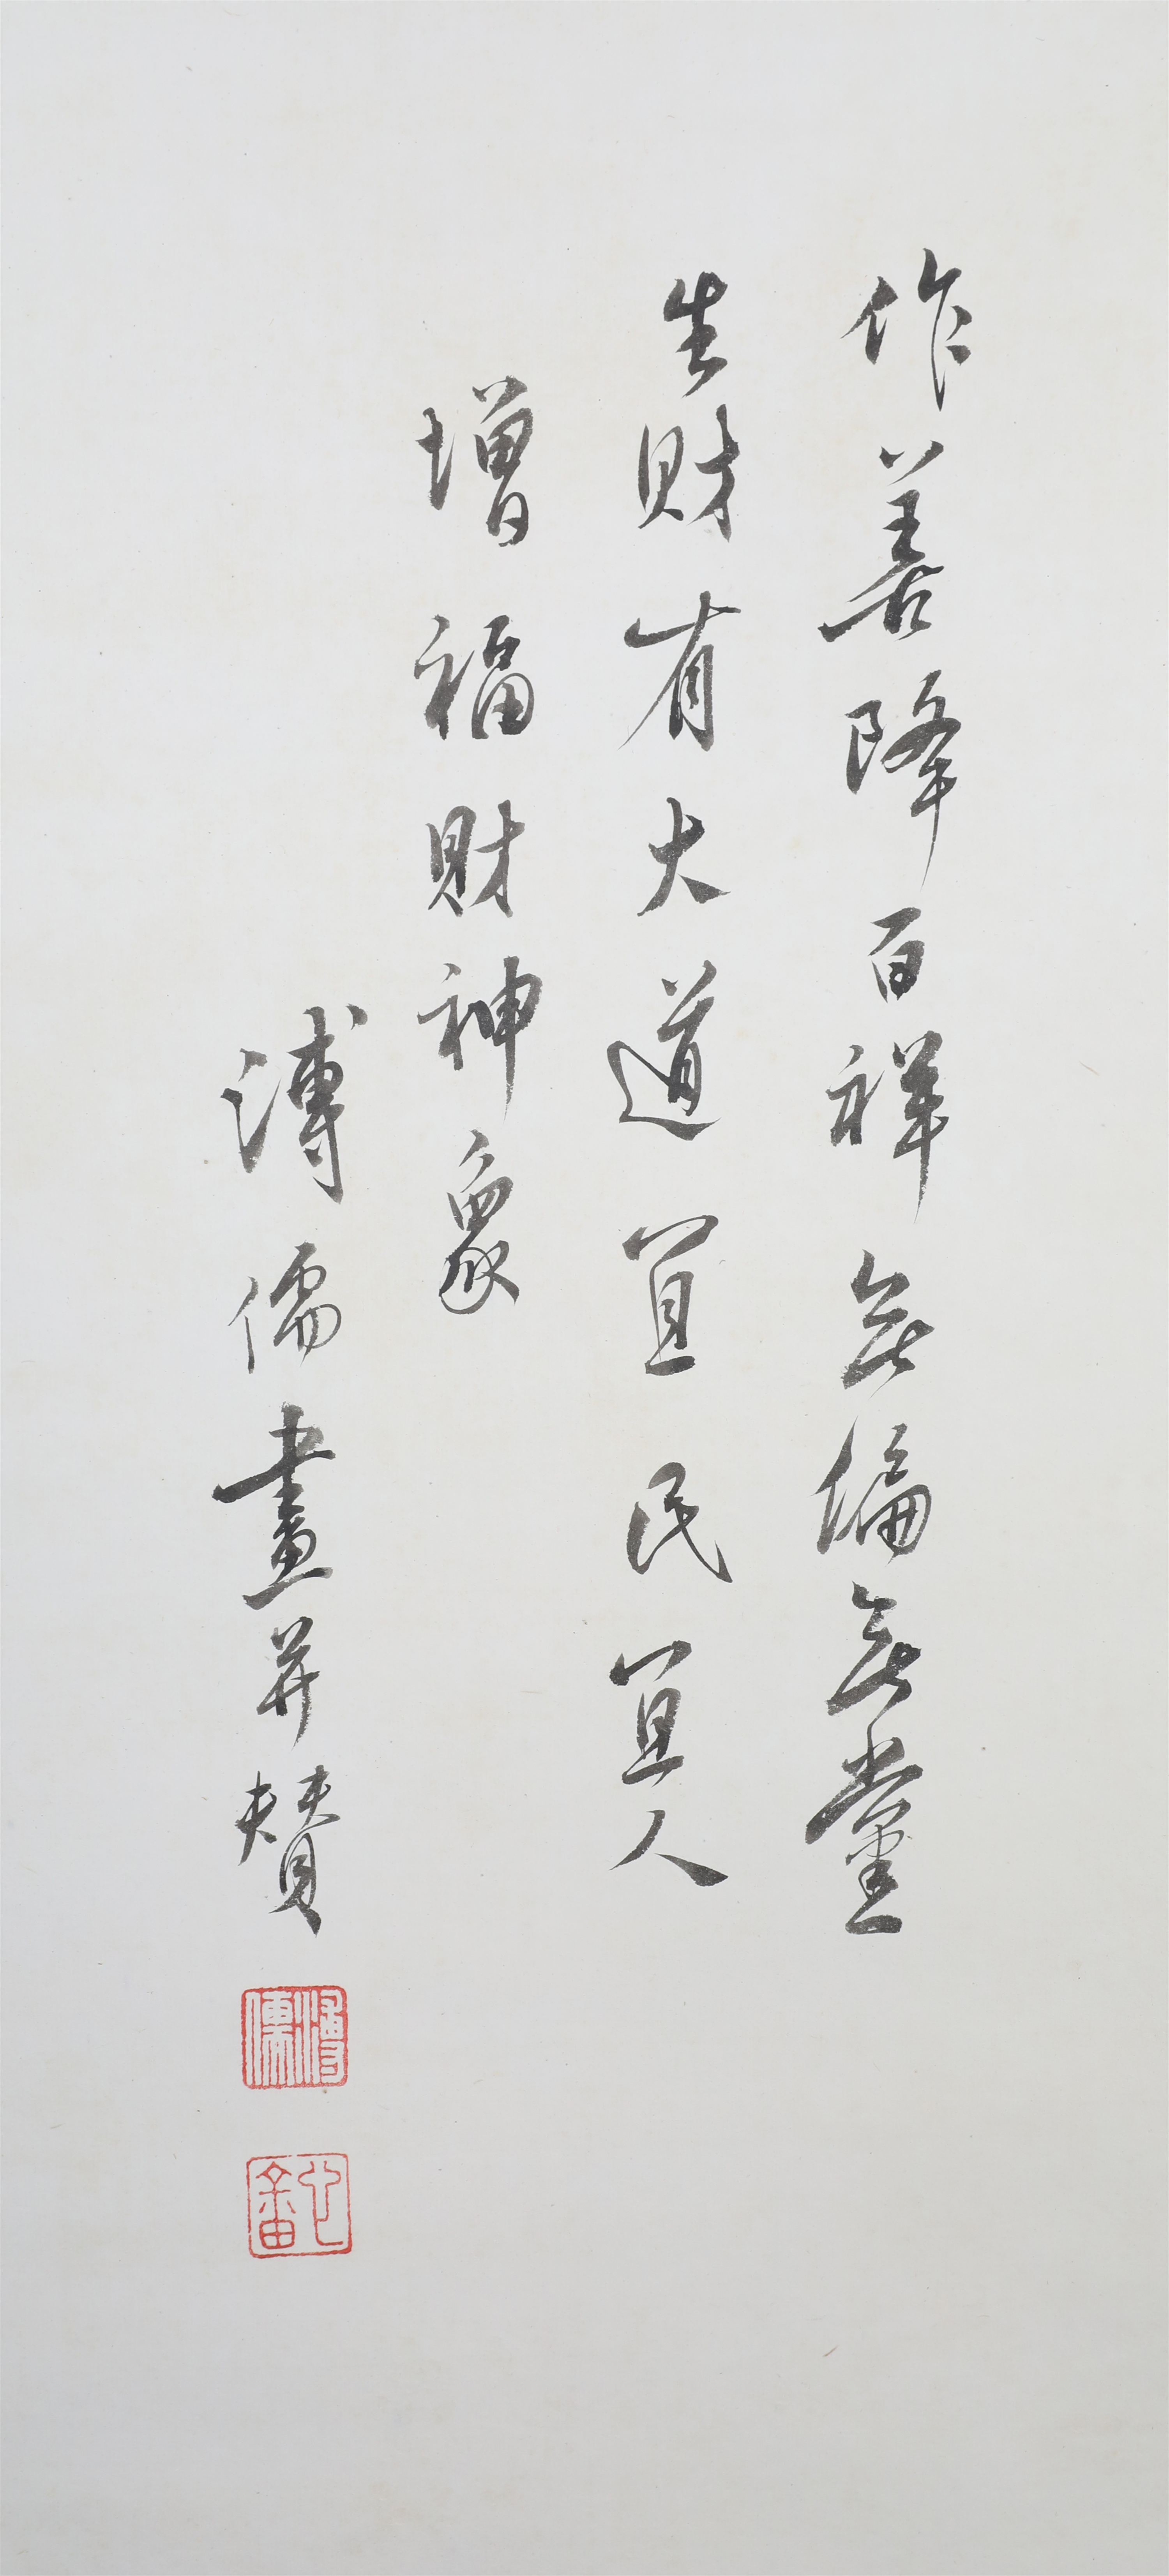 作善降百祥無偏無黨
生財有大道宜民宜人
增福財神象
溥儒畫并贊
溥儒
心畬